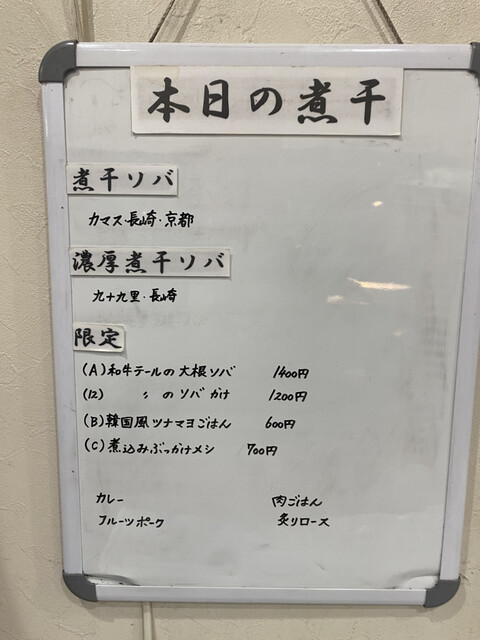 本日の煮干
煮干ソバ
カマス・長崎・京都
濃厚煮干ソバ
九十九里・長崎
限定
(A)和牛テールの大根ソバ 1400円
(12) 〃 のソバかけ 1200円
(B)韓国風ツナマヨごはん 600円
(C)煮込みぶっかけメシ 700円
カレー 肉ごはん
フルーツポーク 炙りロース